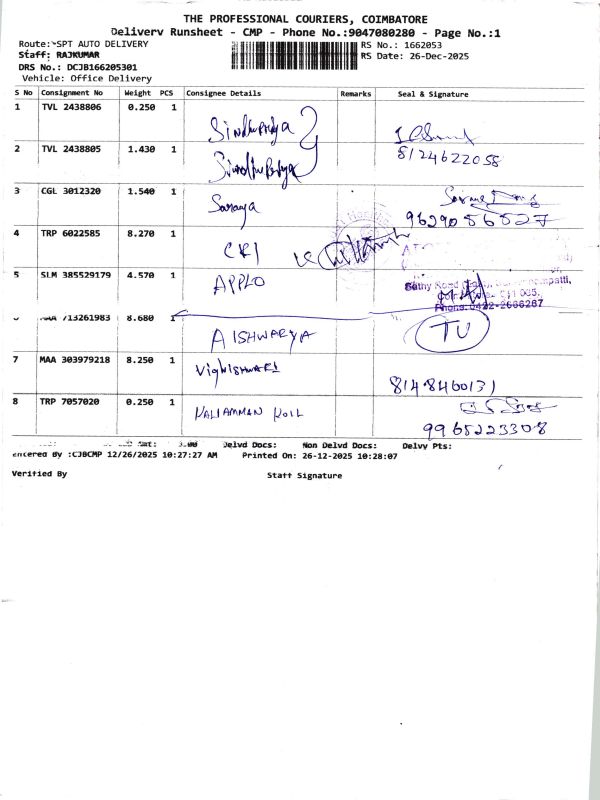 THE PROFESSIONAL COURIERS, COIMBATORE
Delivery Runsheet - CMP - Phone No.:9047080280 - Page No.:1
Route: SPT AUTO DELIVERY
RS No.: 1662053
Staff: RAJKUMAR
RS Date: 26-Dec-2025
DRS No.: DCJB166205301
Vehicle: Office Delivery
S No Consignment No Weight PCS Consignee Details Remarks Seal & Signature
1 TVL 2438806 0.250 1 Sindhupriya
2 TVL 2438805 1.430 1 8124622058
3 CGL 3012320 1.540 1 Saranya 9629056527
4 TRP 6022585 8.270 1 CRI
5 SLM 385529179 4.570 1 APPLO
Phone: 0422-2666267
MAA 713261983 8.680 1 AISHWARYA TU
7 MAA 303979218 8.250 1 VIGNISHWARI 8148460131
8 TRP 7057020 0.250 1 KALIAMMAN KOIL 9965223308
Delvd Docs: Non Delvd Docs: Delvy Pts:
Entered By :CJBCMP 12/26/2025 10:27:27 AM Printed On: 26-12-2025 10:28:07
Verified By Staff Signature